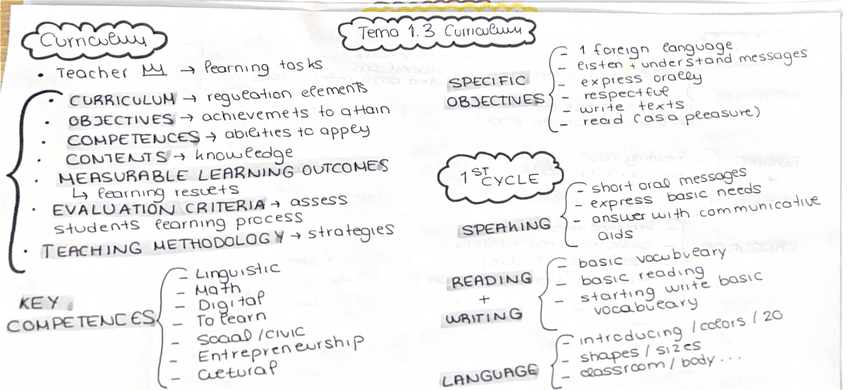 Tema 1.3 Curriculum
Curriculum
• Teacher → learning tasks
• CURRICULUM → regulation elements
• OBJECTIVES → achievemets to attain
• COMPETENCES → abilities to apply
• CONTENTS → knowledge
• MEASURABLE LEARNING OUTCOMES
↳ learning results
• EVALUATION CRITERIA → assess
students learning process
• TEACHING METHODOLOGY → strategies
KEY
COMPETENCES
- Linguistic
- Math
- Digital
- To learn
- Social / civic
- Entrepreneurship
- Cultural
SPECIFIC
OBJECTIVES
- 1 foreign language
- listen + understand messages
- express orally
- respectful
- write texts
- read (as a pleasure)
1ST CYCLE
SPEAKING
- short oral messages
- express basic needs
- answer with communicative
aids
READING
+
WRITING
- basic vocabulary
- basic reading
- starting write basic
vocabulary
LANGUAGE
- introducing / colors / 20
- shapes / sizes
- classroom / body ...